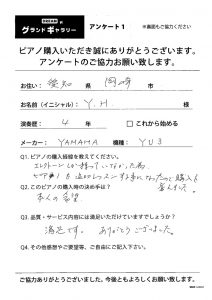 グランドギャラリー アンケート1 ※裏面もご協力ください
ピアノ購入いただき誠にありがとうございます。
アンケートのご協力お願い致します。
お住い: 愛知 県 岡崎 市
お名前(イニシャル): Y. H. 様
演奏歴: 4 年 □ これから始める
メーカー: YAMAHA 機種: YU3
Q1. ピアノの購入経緯を教えてください。
エレクトーンしか持っていなかった為、
ピアノ
Q2. このピアノ購入時の決め手は?
本人の希望
Q3. 品質・サービス内容には満足いただけていますでしょうか?
満足です。ありがとうございました。
Q4. その他感想やご要望等、ご自由にご記入下さい。
ご協力ありがとうございました。今後ともよろしくお願い致します。